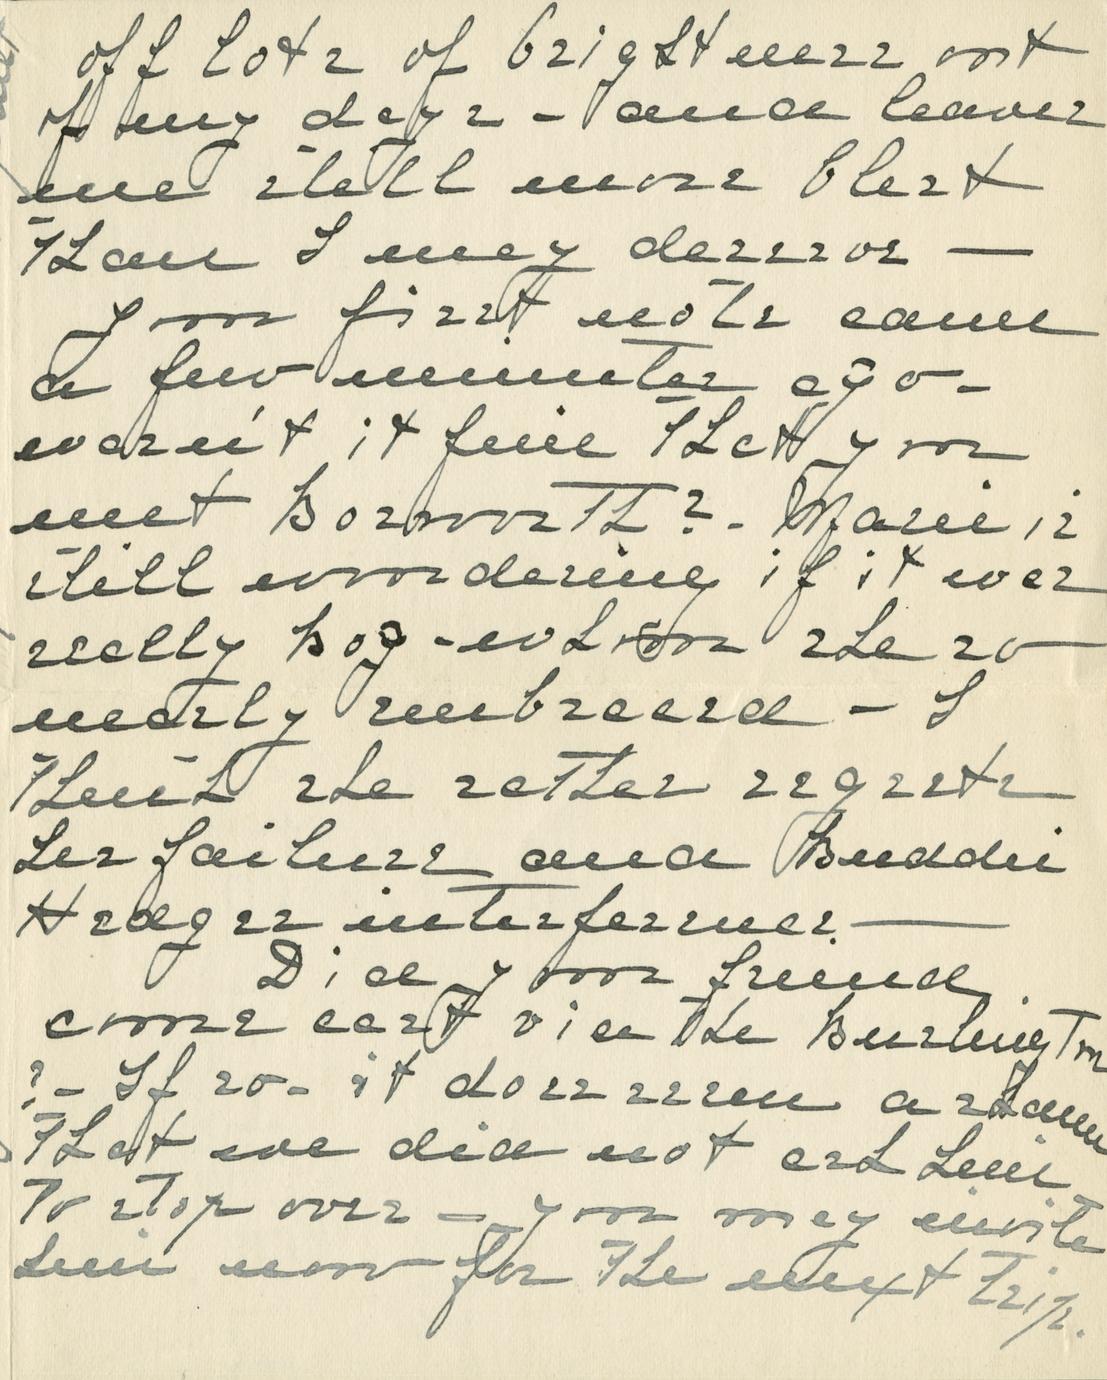 off lots of brightness out
of my days - and leaves
me still more blest
than I may deserve —
Your first note came
a few minutes ago -
wasn't it fine that you
met Bosworth? - Marie is
still wondering if it was
really - whom she so
nearly embraced - I
think she rather regrets
her failure and Buddie
interference —
Did your friend
come east via the Burlington
? - If so - it does seem a shame
that we did not ask him
to stop over - you may invite
him now for the next trip.